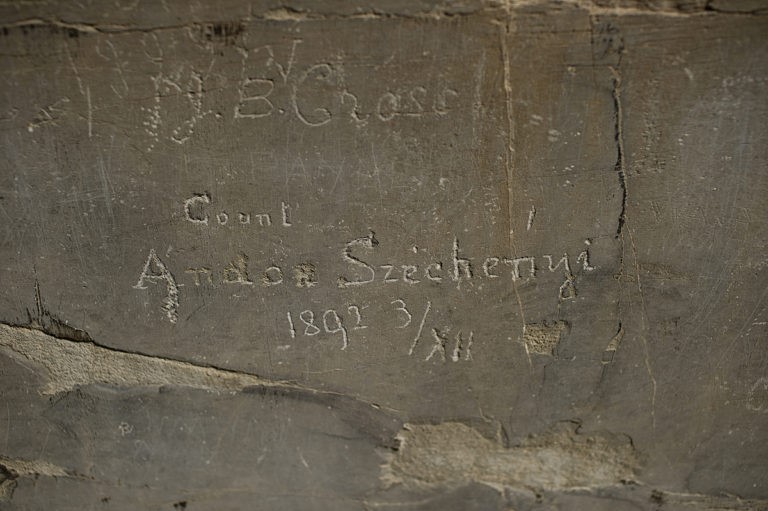 J. B. Cross
Count
Andor Széchényi
1892 3/XII